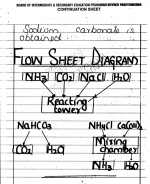 BOARD OF INTERMEDIATE & SECONDARY EDUCATION
CONTINUATION SHEET
Sodium carbonate is
obtained
FLOW SHEET DIAGRAM
NH3 CO2 NaCl H2O
Reacting
tower
NaHCO3 NH4Cl Ca(OH)2
CO2 H2O Mixing
chamber
NH3 H2O